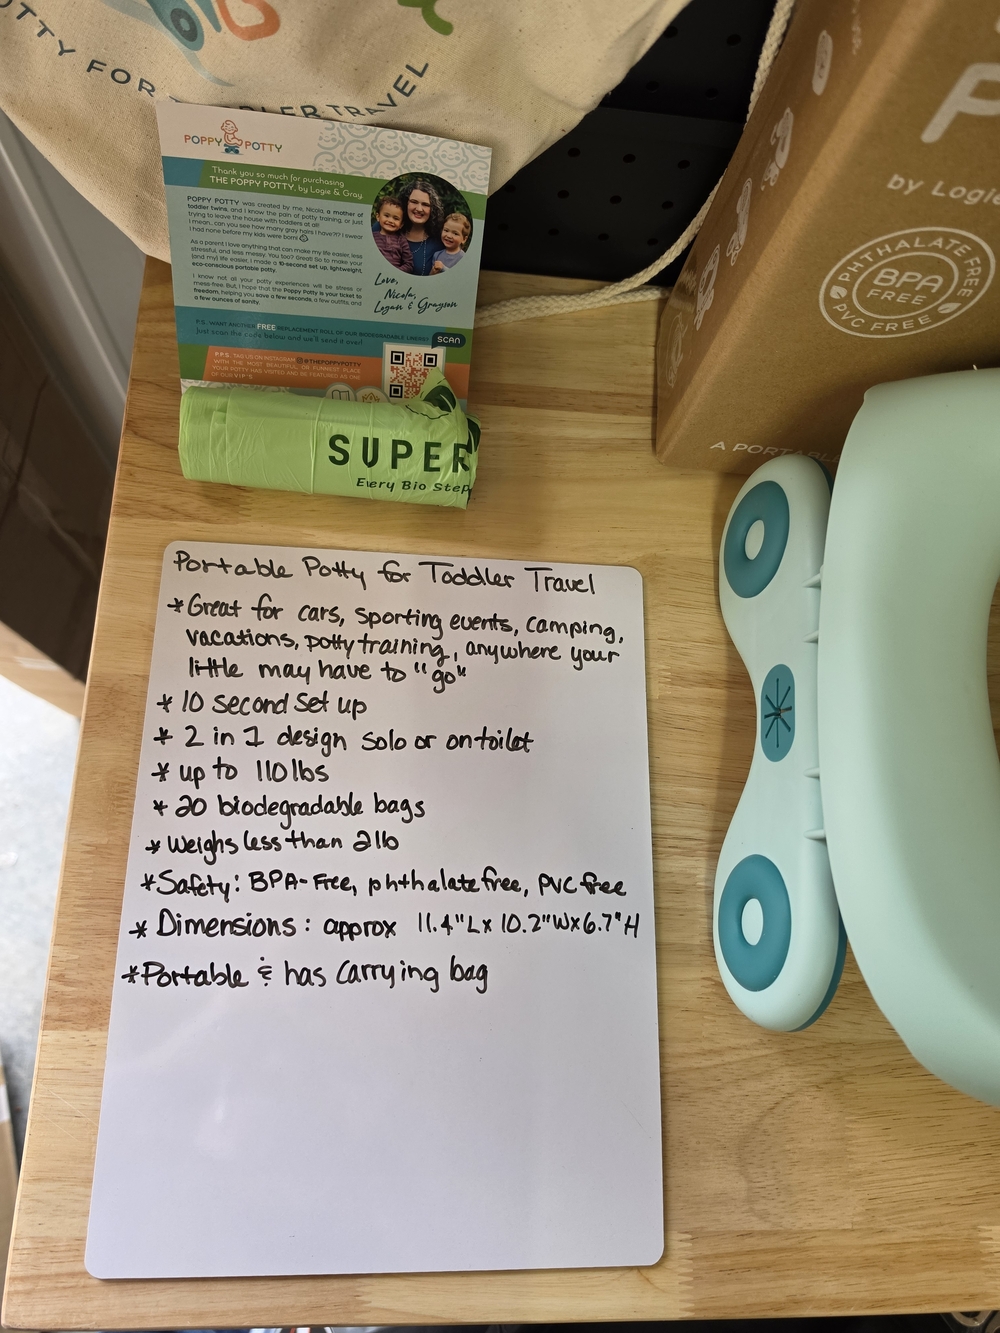 POTTY FOR TODDLER TRAVEL
POPPY POTTY
Thank you so much for purchasing
THE POPPY POTTY, by Logie & Gray
POPPY POTTY was created by me, Nicola, a mother of
toddler twins, and I know the pain of potty training, or just
trying to leave the house with toddlers at all!
I mean...can you see how many gray hairs I have?!? I swear
I had none before my kids were born!
As a parent I love anything that can make my life easier, less
stressful, and less messy. You too? Great! So to make your
(and my) life easier, I made a 10-second set up, lightweight,
eco-conscious portable potty.
I know not all your potty experiences will be stress or
mess-free. But, I hope that the Poppy Potty is your ticket to
freedom, helping you save a few seconds, a few outfits, and
a few ounces of sanity.
Love,
Nicola,
Logan & Grayson
P.S. WANT ANOTHER FREE REPLACEMENT ROLL OF OUR BIODEGRADABLE LINERS?
Just scan the code below and we'll send it over!
SCAN
P.P.S. TAG US ON INSTAGRAM @THEPOPPYPOTTY
WITH THE MOST BEAUTIFUL, OR FUNNIEST PLACE
YOUR POTTY HAS VISITED AND BE FEATURED AS ONE
OF OUR V.I.P.'S
SUPER
Every Bio Step
P
by Logie
PHTHALATE FREE
BPA
FREE
PVC FREE
A PORTABL
Portable Potty for Toddler Travel
* Great for cars, sporting events, camping,
vacations, potty training, anywhere your
little may have to "go"
* 10 second set up
* 2 in 1 design solo or on toilet
* up to 110 lbs
* 20 biodegradable bags
* Weighs less than 2 lb
* Safety: BPA-Free, phthalate free, PVC free
* Dimensions: approx 11.4"L x 10.2"W x 6.7"H
* Portable & has carrying bag